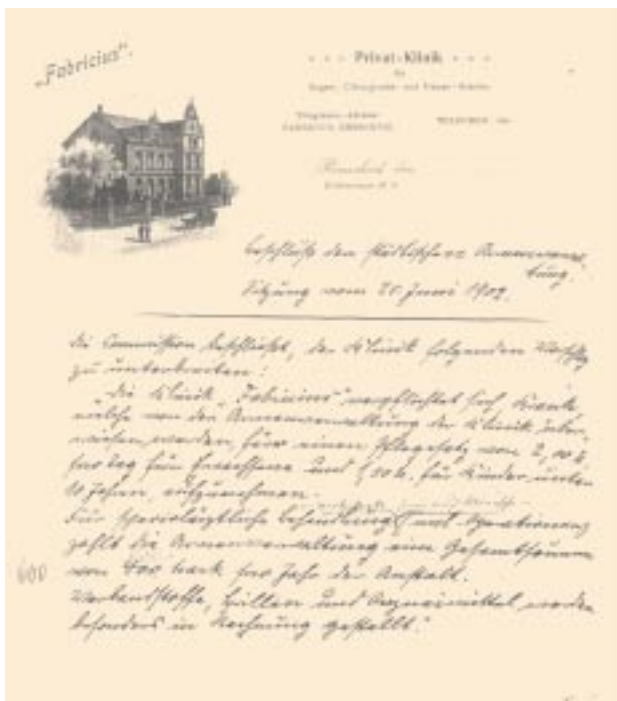 „Fabricius“.
Privat-Klinik
für
Augen-, Chirurgische- und Frauen-Kranke
Telegramm-Adresse:
FABRICIUS REMSCHEID
TELEPHON
Remscheid, den
Beschluß der städtischen Armenverwal-
tung.
Sitzung vom 20. Juni 1902.
Die Commission beschließt, der Klinik folgenden Vorschlag
zu unterbreiten:
„Die Klinik „Fabricius“ verpflichtet sich, Kranke,
welche von der Armenverwaltung der Klinik über-
wiesen werden, für einen Pflegesatz von 2,00 M
pro Tag für Erwachsene und 1,00 M. für Kinder unter
10 Jahren, aufzunehmen.
Für specialärztliche Behandlung und Operationen
zahlt die Armenverwaltung eine Gesamtsumme
600
von 400 Mark pro Jahr der Anstalt.
Verbandstoffe, Brillen und Arzneimittel werden
besonders in Rechnung gestellt.“